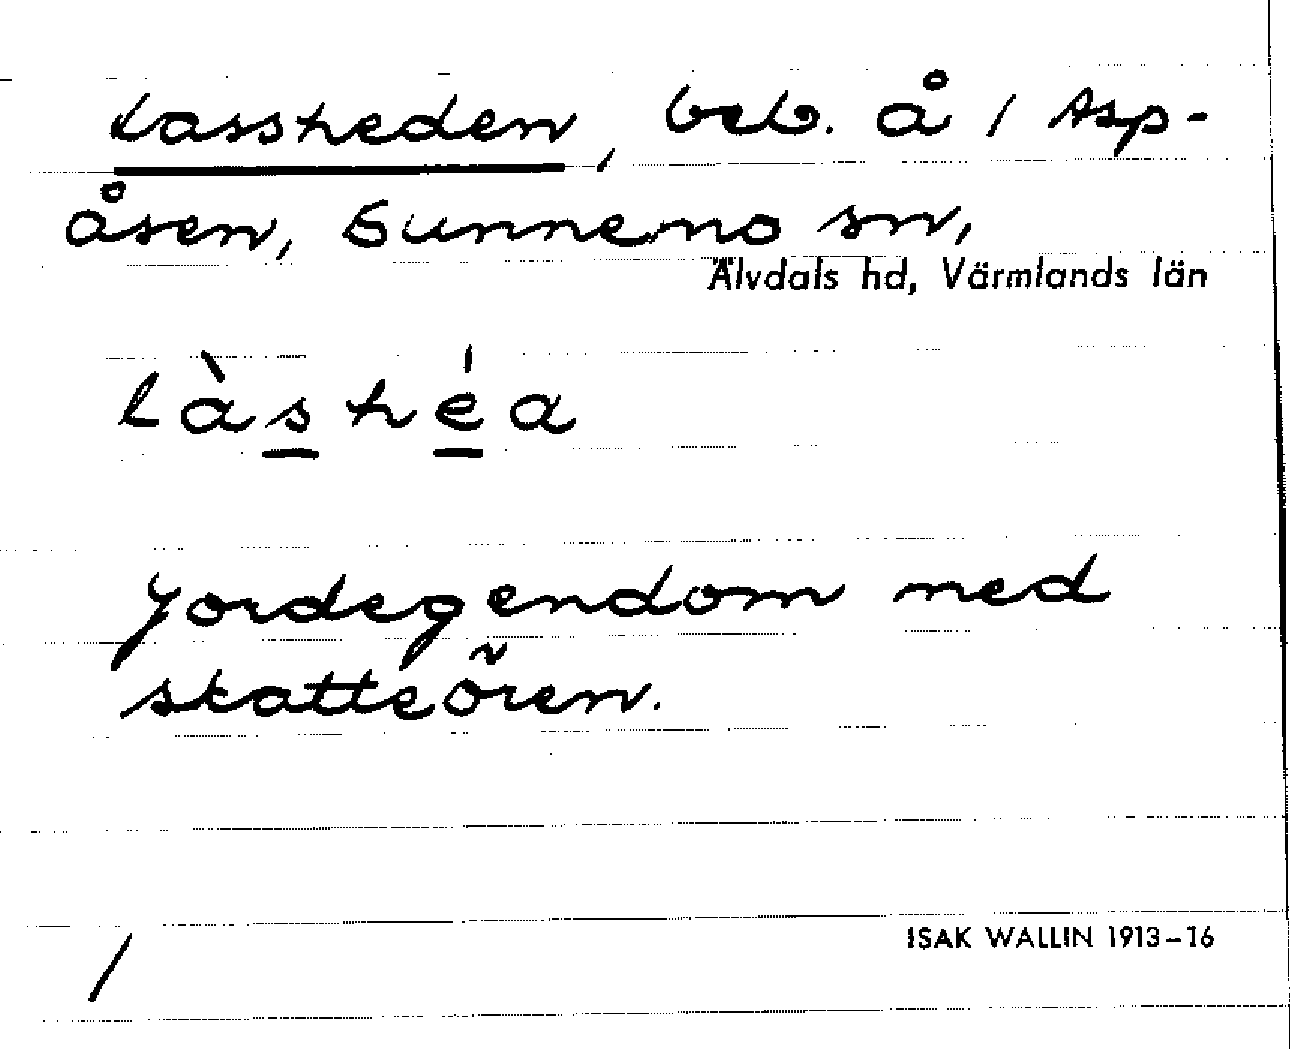 Lassheden, beb. å 1 Asp-
åsen, Sunnemo sn,
Älvdals hd, Värmlands län
làshéa
Jordegendom med
skatteören.
ISAK WALLIN 1913–16
/